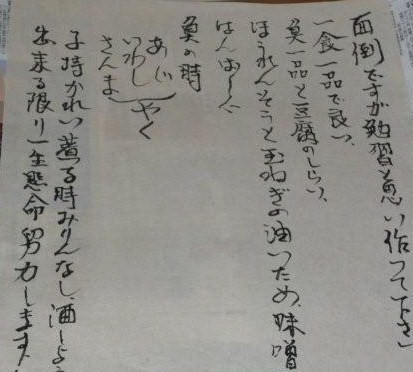 面倒ですが勉習と思い作って下さ
一食一品で良い、
魚一品と豆腐のしらい、
ほうれんそうと玉ねぎの油いため、味噌
はんばーぐ
魚の時
あじ
いわし やく
さんま
子持かれい煮る時みりんなし、酒しょう
出来る限り一生懸命努力します